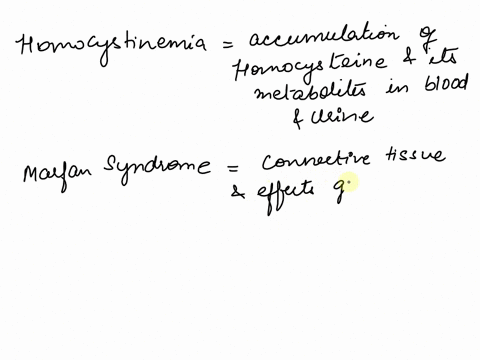 Homocystinemia = accumulation of
Homocysteine & its
metabolites in blood
& Urine
Marfan Syndrome = Connective tissue
& effects g